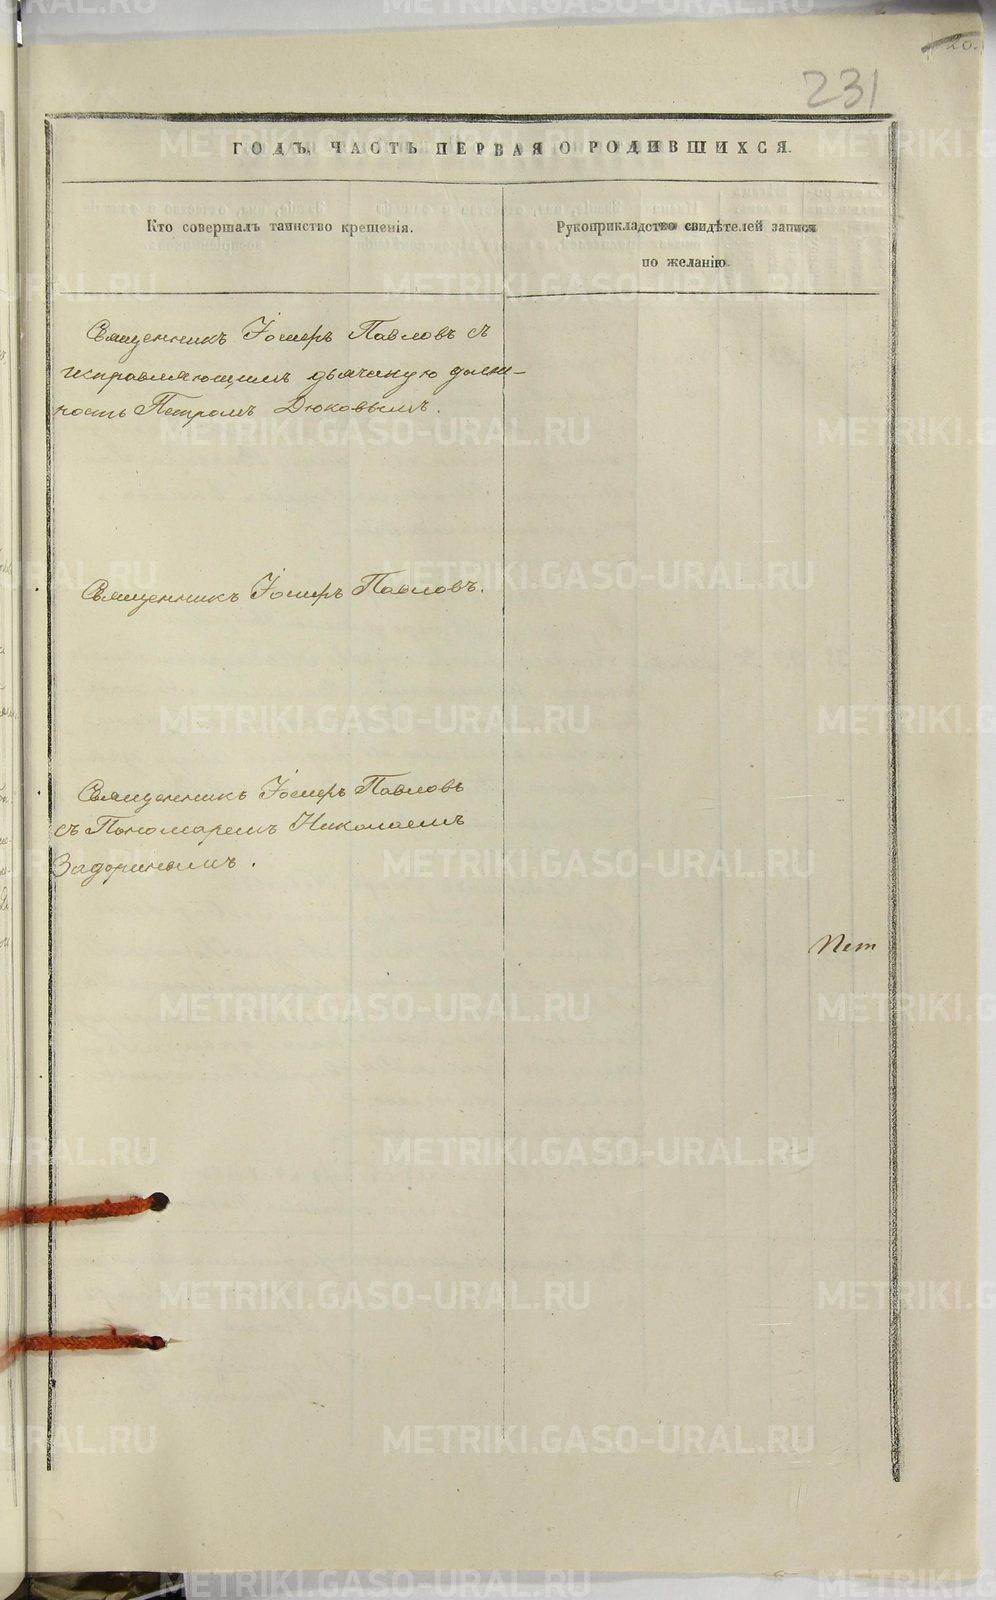 20.
231
ГОДЪ, ЧАСТЬ ПЕРВАЯ О РОДИВШИХСЯ.
Кто совершалъ таинство крещенія.
Рукоприкладство свидѣтелей записи
по желанію.
Священникъ Іосифъ Павловъ съ
исправляющимъ дьячкую долж-
ность Петромъ Дюковымъ.
Священникъ Іосифъ Павловъ.
Священникъ Іосифъ Павловъ
съ Пономаремъ Николаемъ
Задоринымъ.
METRIKI.GASO-URAL.RU